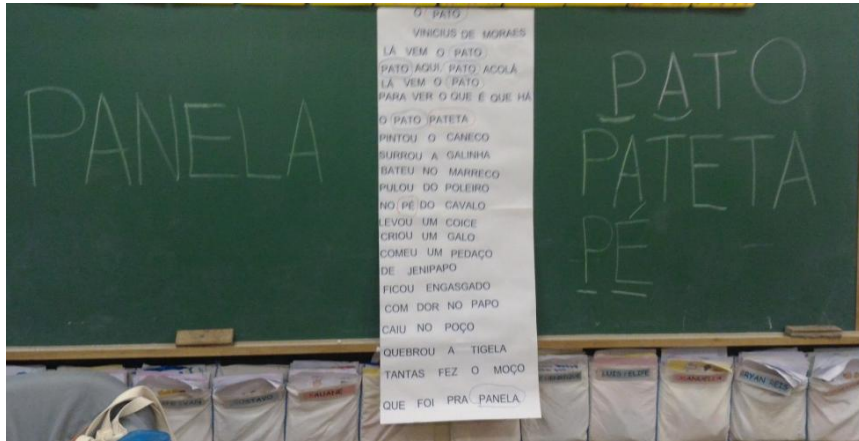 PANELA
O PATO
VINICIUS DE MORAES
LÁ VEM O PATO
PATO AQUI, PATO ACOLÁ
LÁ VEM O PATO
PARA VER O QUE É QUE HÁ
O PATO PATETA
PINTOU O CANECO
SURROU A GALINHA
BATEU NO MARRECO
PULOU DO POLEIRO
NO PÉ DO CAVALO
LEVOU UM COICE
CRIOU UM GALO
COMEU UM PEDAÇO
DE JENIPAPO
FICOU ENGASGADO
COM DOR NO PAPO
CAIU NO POÇO
QUEBROU A TIGELA
TANTAS FEZ O MOÇO
QUE FOI PRA PANELA
PATO
PATETA
PÉ
GUSTAVO
LUIS FELIPE
RYAN